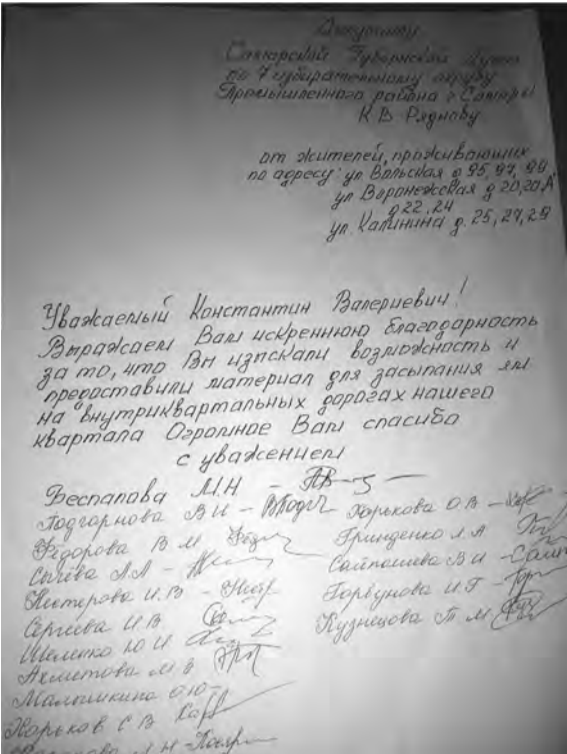 Депутату
Самарской Губернской Думы
по 7 избирательному округу
Промышленного района г. Самары
К.В. Ряднову
от жителей, проживающих
по адресу: ул Вольская д 95, 97, 99,
ул Воронежская д 20, 20А
д 22, 24
ул. Калинина д. 25, 27, 29
Уважаемый Константин Валериевич!
Выражаем Вам искреннюю благодарность
за то, что Вы изыскали возможность и
предоставили материал для засыпания ям
на внутриквартальных дорогах нашего
квартала Огромное Вам спасибо
с уважением
Беспалова М.Н -
Подгорнова В И -
Федорова В М
Сычева Л.Л -
Нистерова И.В -
Сергеева И.В
Шеленко Ю И
Ахметова М В
Малышкина О.Ю-
Харьков С В
Л Н -
Харькова О.В -
Гринденко Л.А
Сайпашева В И -
Горбунова И.Г -
Кузнецова Т М